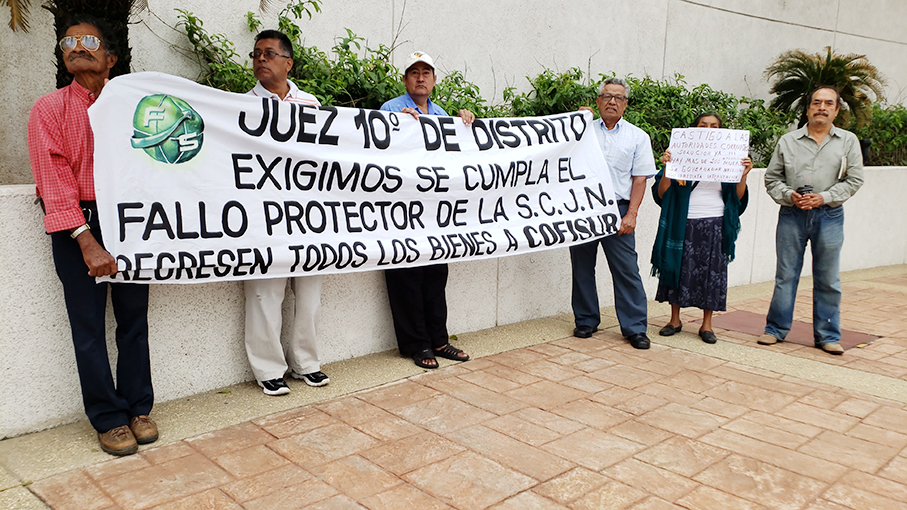 JUEZ 10º DE DISTRITO
EXIGIMOS SE CUMPLA EL
FALLO PROTECTOR DE LA S.C.J.N.
REGRESEN TODOS LOS BIENES A COFISUR
CASTIGO A LA
AUTORIDADES
SOLUCION YA
MAS DE 200